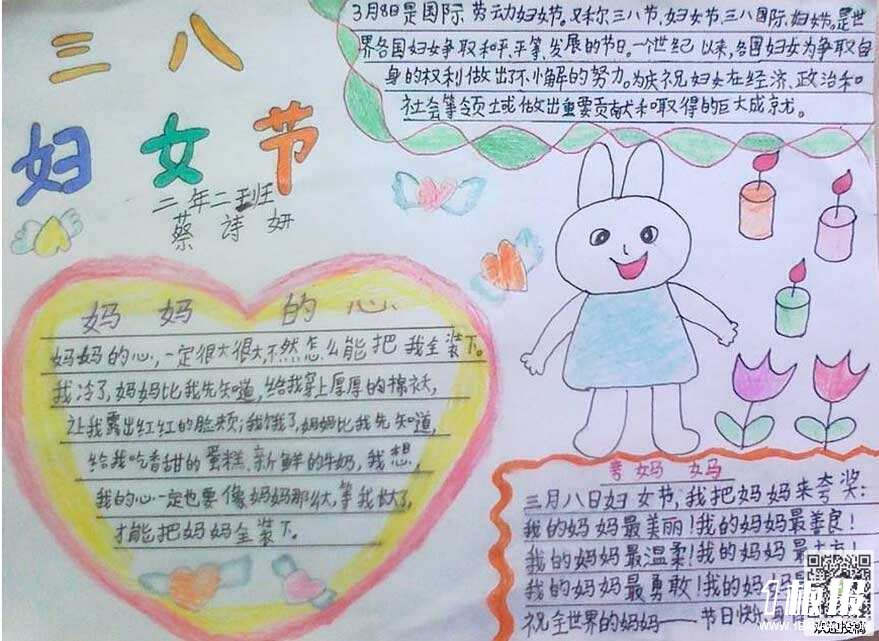 三八
妇女节
二年二班
蔡诗妍
3月8日是国际劳动妇女节。又称三八节,妇女节,三八国际妇女节。是世
界各国妇女争取和平、平等、发展的节日。一个世纪以来,各国妇女为争取自
身的权利做出了不小懈的努力。为庆祝妇女在经济、政治和
社会等领土或做出重要贡献和取得的巨大成京尤。
妈妈的心
妈妈的心,一定很大很大,不然怎么能把我全装下。
我冷了,妈妈比我先知道,给我穿上厚厚的棉袄,
让我露出红红的脸颊;我饿了,妈妈比我先知道,
给我吃香甜的蛋糕、新鲜的牛奶,我想,
我的心一定也要像妈妈那么大,等我大了,
才能把妈妈全装下。
夸妈妈
三月八日妇女节,我把妈妈来夸奖:
我的妈妈最美丽!我的妈妈最善良!
我的妈妈最温柔!我的妈妈最
我的妈妈最勇敢!我的妈妈
祝全世界的妈妈——节日快
板报